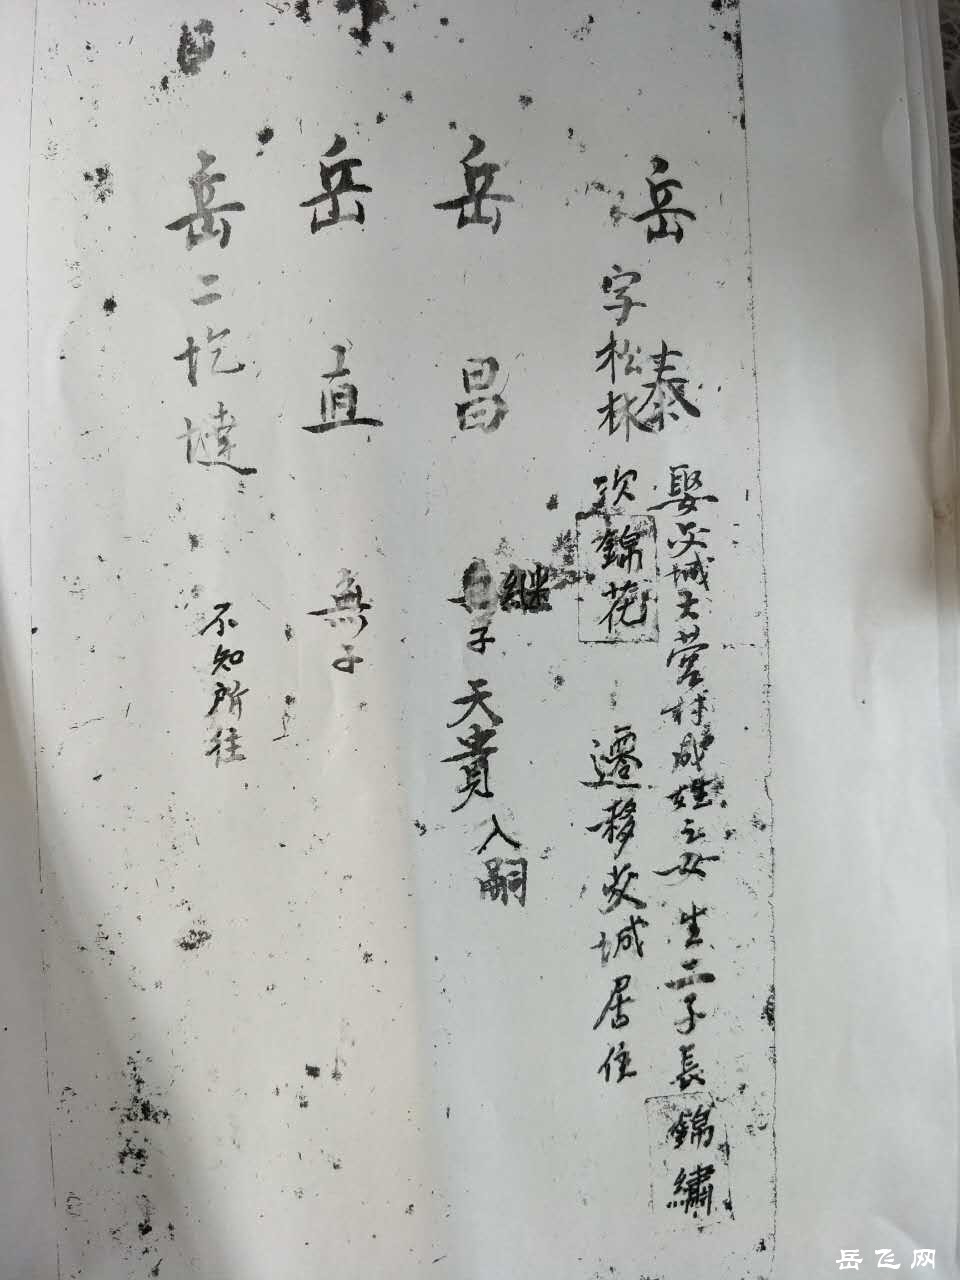 岳泰 娶交城大营村成姓之女 生二子長錦繡
字松林 次錦花 遷移交城居住
岳昌 繼子天貴入嗣
岳直 無子
岳二圪墶 不知所往
岳飞网